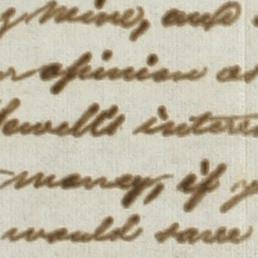 g mine, and
r opinion as
Sewell's interes
money, if y
would save